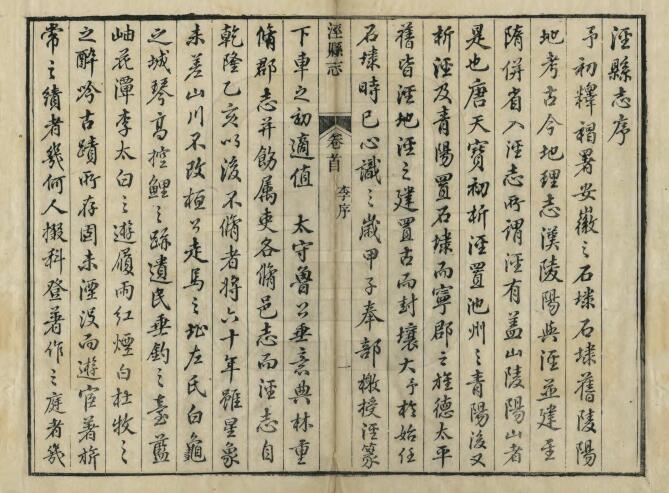 涇縣志序
予初釋褐署安徽之石埭石埭舊陵陽
地考古今地理志漢陵陽與涇並建至
隋併省入涇志所謂涇有蓋山陵陽山者
是也唐天寶初析涇置池州之青陽後又
析涇及青陽置石埭而寧郡之旌德太平
舊皆涇地涇之建置古而封壤大予於始任
石埭時已心識之歲甲子奉部檄授涇篆
涇縣志
卷首
李序
一
下車之初適值 太守魯公垂意典林重
脩郡志并飭属吏各脩邑志而涇志自
乾隆乙亥以後不脩者將六十年雖星象
未差山川不改桓公走馬之址左氏白龜
之城琴高控鯉之跡遺民垂釣之臺藍
岫花潭李太白之遊履雨紅煙白杜牧之
之醉吟古蹟所存固未湮没而遊宦著旂
常之績者幾何人掇科登著作之庭者幾